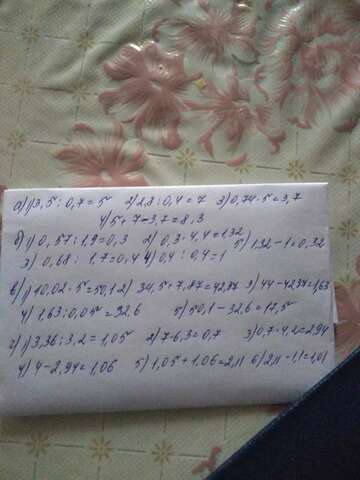 а) 1) 3,5 : 0,7 = 5 2) 2,8 : 0,4 = 7 3) 0,74 · 5 = 3,7
4) 5 + 7 - 3,7 = 8,3
б) 1) 0,57 : 1,9 = 0,3 2) 0,3 · 4,4 = 1,32
3) 0,68 : 1,7 = 0,4 4) 0,4 : 0,4 = 1 5) 1,32 - 1 = 0,32
в) 1) 10,02 · 5 = 50,1 2) 34,5 + 7,87 = 42,37 3) 44 - 42,37 = 1,63
4) 1,63 : 0,05 = 32,6 5) 50,1 - 32,6 = 17,5
г) 1) 3,36 : 3,2 = 1,05 2) 7 - 6,3 = 0,7 3) 0,7 · 4,2 = 2,94
4) 4 - 2,94 = 1,06 5) 1,05 + 1,06 = 2,11 6) 2,11 - 1,1 = 1,01